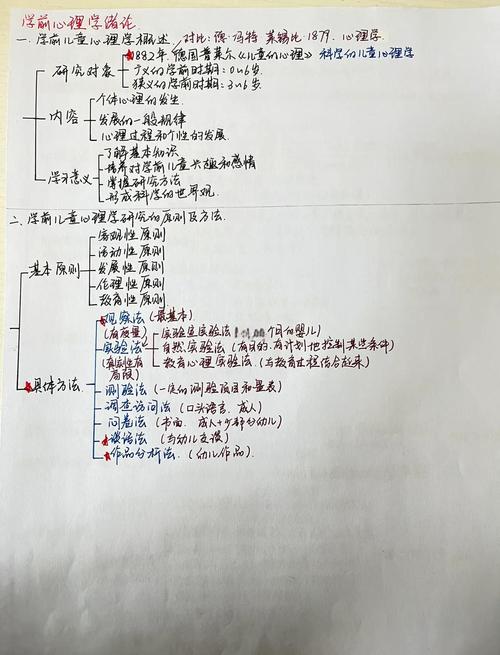 学前心理学绪论
一、学前儿童心理学概述 对比:德.冯特 莱锡比.1879.心理学
研究对象
1882年.德国普莱尔《儿童的心理》科学的儿童心理学
广义的学前时期:0~6岁
狭义的学前时期:3~6岁.
内容
个体心理的发生.
发展的一般规律
心理过程和个性的发展.
学习意义
了解基本知识
培养对学前儿童兴趣和感情
掌握研究方法
形成科学的世界观.
二、学前儿童心理学研究的原则及方法.
基本原则
客观性原则
活动性原则
发展性原则
伦理性原则
教育性原则
具体方法
观察法(最基本)
实验法
实验室实验法 个月的婴儿)
自然实验法(有目的.有计划地控制某些条件)
教育心理实验法.(与教育过程结合起来)
测验法(一定的测验项目和量表)
调查访问法(口头语言.成人)
问卷法(书面.成人+少部分幼儿)
谈话法(与幼儿交谈)
作品分析法.(幼儿作品).